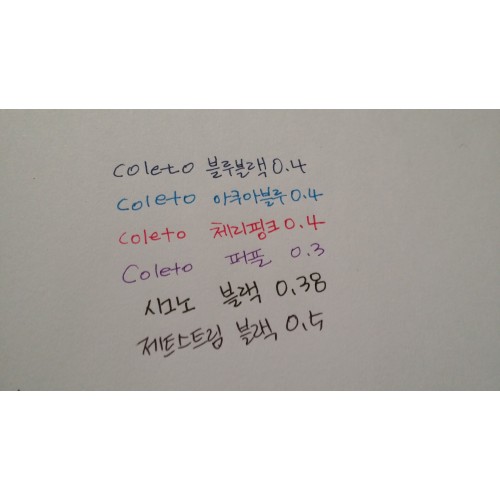 coleto 블루블랙 0.4
coleto 아쿠아블루 0.4
coleto 체리핑크 0.4
Coleto 퍼플 0.3
시그노 블랙 0.38
제트스트림 블랙 0.5